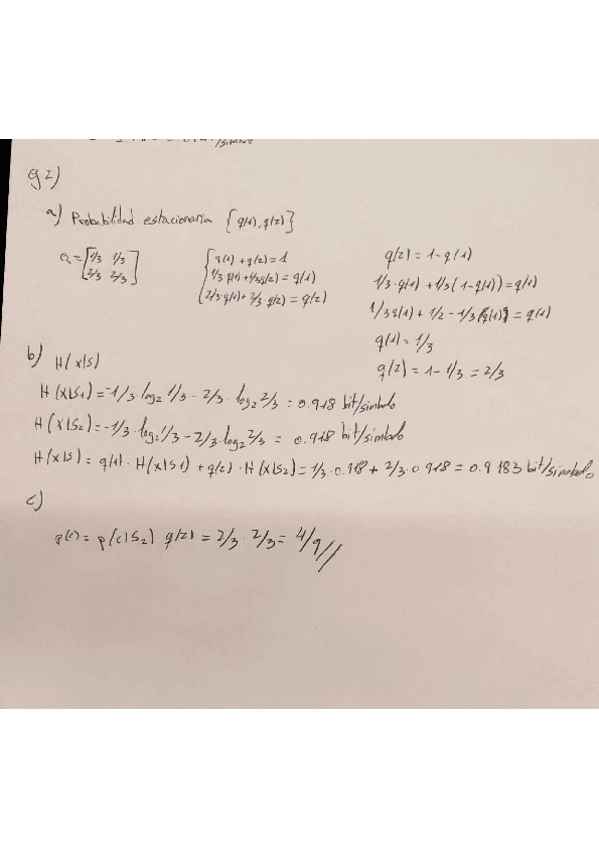 /símbolo
ej 2)
a) Probabilidad estacionaria {q(1), q(2)}
Q = [1/3 1/3
2/3 2/3]
{q(1) + q(2) = 1
1/3 q(1) + 1/3 q(2) = q(1)
2/3 q(1) + 2/3 q(2) = q(2)
q(2) = 1 - q(1)
1/3 · q(1) + 1/3 (1 - q(1)) = q(1)
1/3 q(1) + 1/2 - 1/3 q(1) = q(1)
q(1) = 1/3
q(2) = 1 - 1/3 = 2/3
b) H(X|S)
H(X|S1) = -1/3 · log2 1/3 - 2/3 · log2 2/3 = 0.918 bit/símbolo
H(X|S2) = -1/3 · log2 1/3 - 2/3 · log2 2/3 = 0.918 bit/símbolo
H(X|S) = q(1) · H(X|S1) + q(2) · H(X|S2) = 1/3 · 0.918 + 2/3 · 0.918 = 0.9183 bit/símbolo
c)
p(c) = p(c|S2) · q(2) = 2/3 · 2/3 = 4/9 //